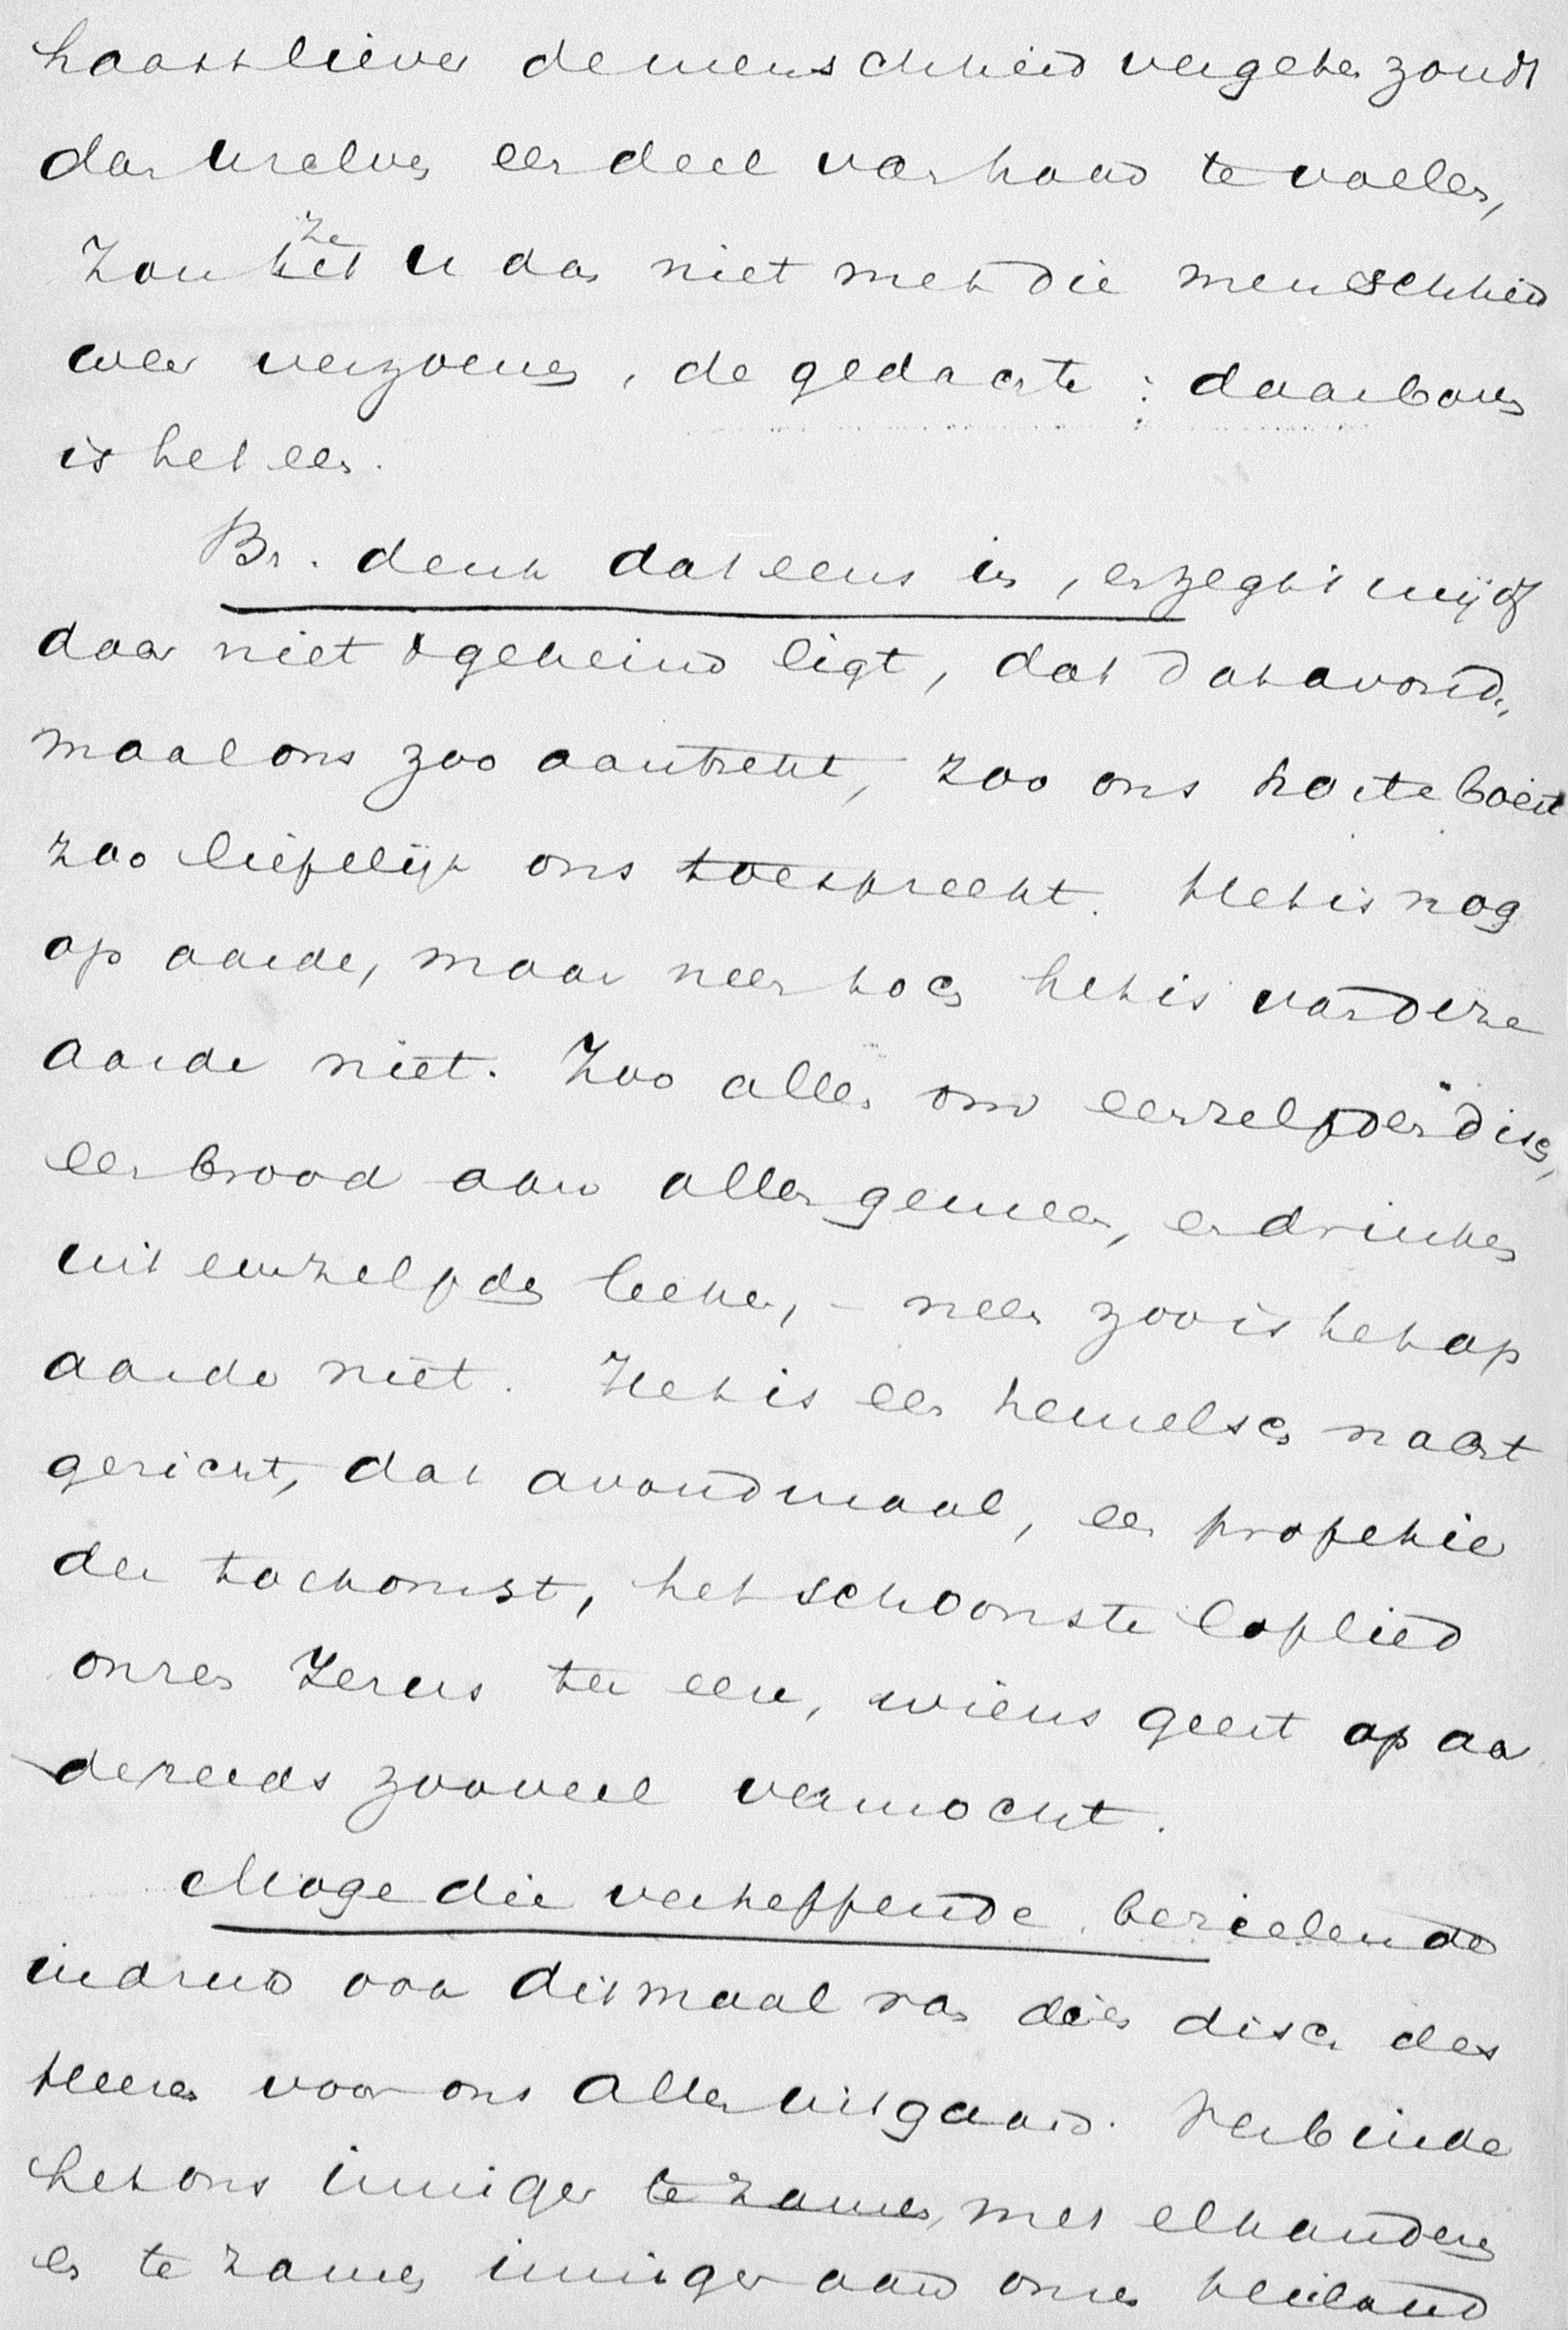 haast liever de menschheid vergeten zoudt
dan u zelven een deel van haar te voelen,
zou ze u dan niet met die menschheid
weer verzoenen, de gedachte: daarboven
is het een.
Br. denk dat eens in, en zegt mij of
daar niet 't geheim ligt, dat dat avond„
maal ons zoo aantrekt, zoo ons harte boeit
zoo liefelijk ons toespreekt. Het is nog
op aarde, maar neen toch het is van deze
aarde niet. Zoo allen om eenzelfden disch,
een brood aan allen gemeen, en drinken
uit eenzelfden beker, – neen zoo is het op
aarde niet. Het is een hemelsch naar
gericht, dat avondmaal, een profetie
der toekomst, het schoonste loflied
onzen Jezus ter eere, wiens geest op aar
de reeds zooveel vermocht.
Moge die verheffende, bezielende
indruk ook dit maal van dien disch des
Heeren voor ons allen uitgaan. Verbinde
het ons inniger te zamen, met elkanderen
en te zamen inniger aan onzen Heiland